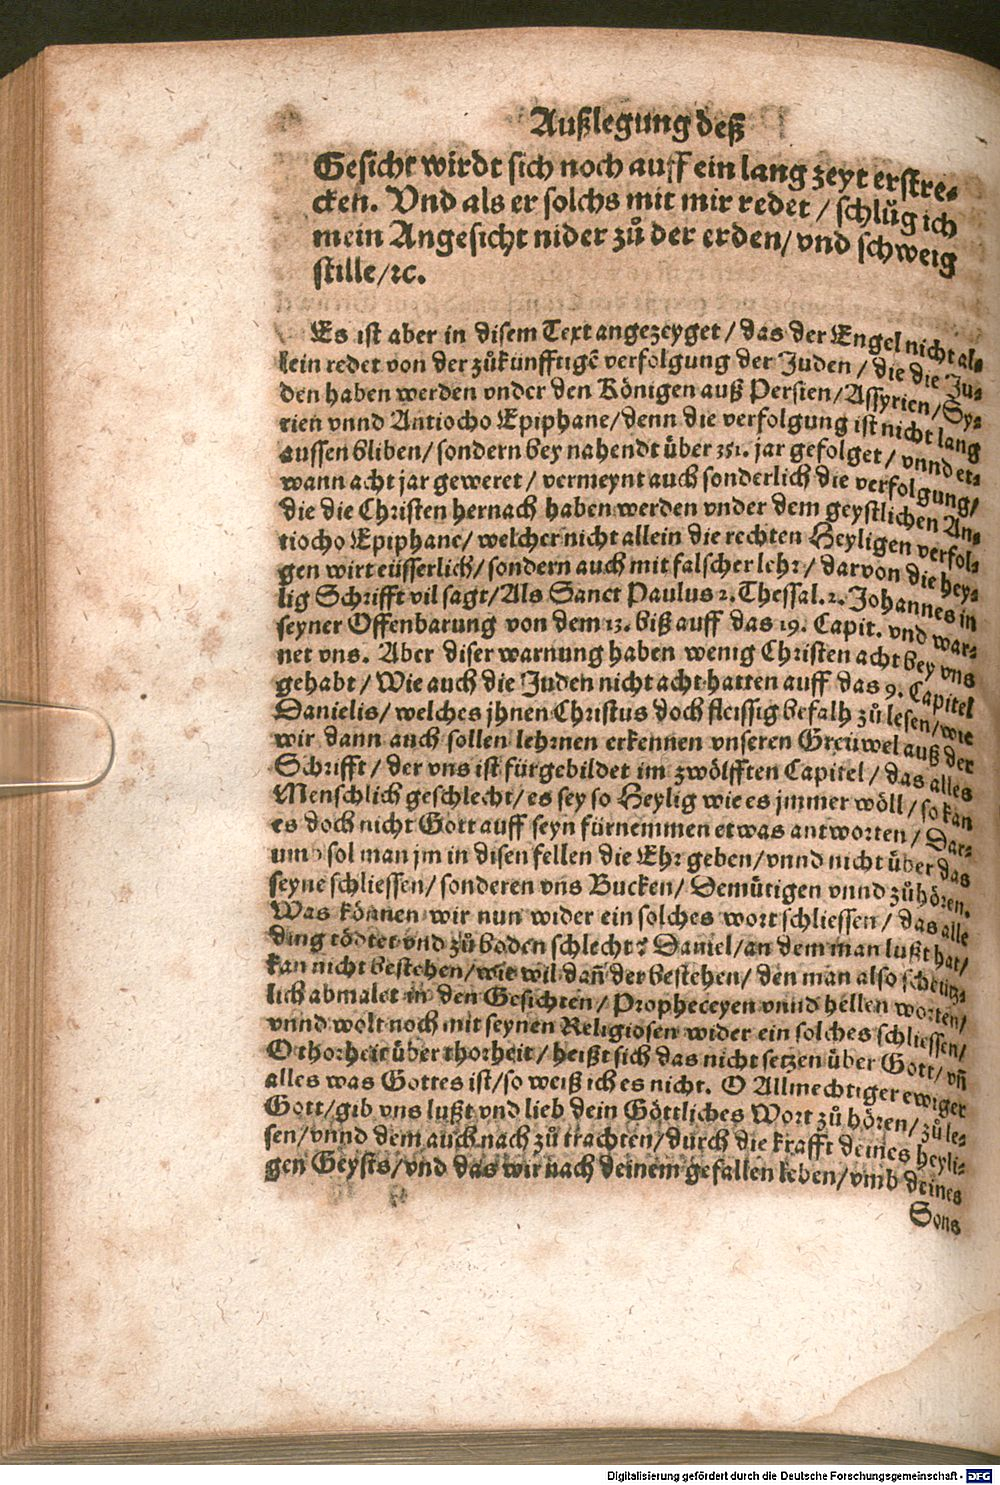 Außlegung deß
Gesicht wirdt sich noch auff ein lang zeyt erstre-
cken. Vnd als er solchs mit mir redet / schlůg ich
mein Angesicht nider zů der erden / vnd schweig
stille / ꝛc.
Es ist aber in disem Text angezeyget / das der Engel nicht al-
lein redet von der zůkünfftigē verfolgung der Juden / die die Ju-
den haben werden vnder den Königen auß Persien / Assyrien / Sy-
rien vnnd Antiocho Epiphane / denn die verfolgung ist nicht lang
aussen bliben / sondern bey nahendt über jar gefolget / vnnd et-
wann acht jar geweret / vermeynt auch sonderlich die verfolgung /
die die Christen hernach haben werden vnder dem geystlichen An-
tiocho Epiphane / welcher nicht allein die rechten Heyligen verfol-
gen wirt eüsserlich / sondern auch mit falscher lehr / darvon die hey-
lig Schrifft vil sagt / Als Sanct Paulus 2. Thessal. 2. Johannes in
seyner Offenbarung von dem 13. biß auff das 19. Capit. vnd war-
net vns. Aber diser warnung haben wenig Christen acht bey vns
gehabt / Wie auch die Juden nicht acht hatten auff das 9. Capitel
Danielis / welches jhnen Christus doch fleissig befalh zů lesen / wie
wir dann auch sollen lehrnen erkennen vnseren Greüwel auß der
Schrifft / der vns ist fürgebildet im zwölfften Capitel / das alles
Menschlich geschlecht / es sey so Heylig wie es jmmer wöll / so kan
es doch nicht Gott auff seyn fürnemmen etwas antworten / Dar-
umb sol man jm in disen fellen die Ehr geben / vnnd nicht über das
seyne schliessen / sonderen vns Bucken / Demütigen vnnd zůhören.
Was können wir nun wider ein solches wort schliessen / das alle
ding tödtet vnd zů boden schlecht? Daniel / an dem man lußt hat /
kan nicht bestehen / wie wil dañ der bestehen / den man also scheütz-
lich abmalet in den Gesichten / Propheceyen vnnd hellen worten /
vnnd wolt noch mit seynen Religiosen wider ein solches schliessen /
O thorheit über thorheit / heißt sich das nicht setzen über Gott / vñ
alles was Gottes ist / so weiß ich es nicht. O Allmechtiger ewiger
Gott / gib vns lußt vnd lieb dein Göttliches Wort zů hören / zů le-
sen / vnnd dem auch nach zů trachten / durch die krafft deines heyli-
gen Geysts / vnd das wir nach deinem gefallen leben / vmb deines
Sons
Digitalisierung gefördert durch die Deutsche Forschungsgemeinschaft - DFG